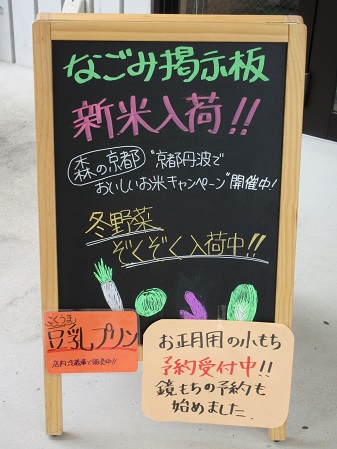 なごみ掲示板
新米入荷!!
森の京都 "京都丹波で
おいしいお米キャンペーン"開催中!
冬野菜
ぞくぞく入荷中!!
ごくうま
豆乳プリン
店内冷蔵庫で販売中!!
お正月用の小もち
予約受付中!!
鏡もちの予約も
始めました